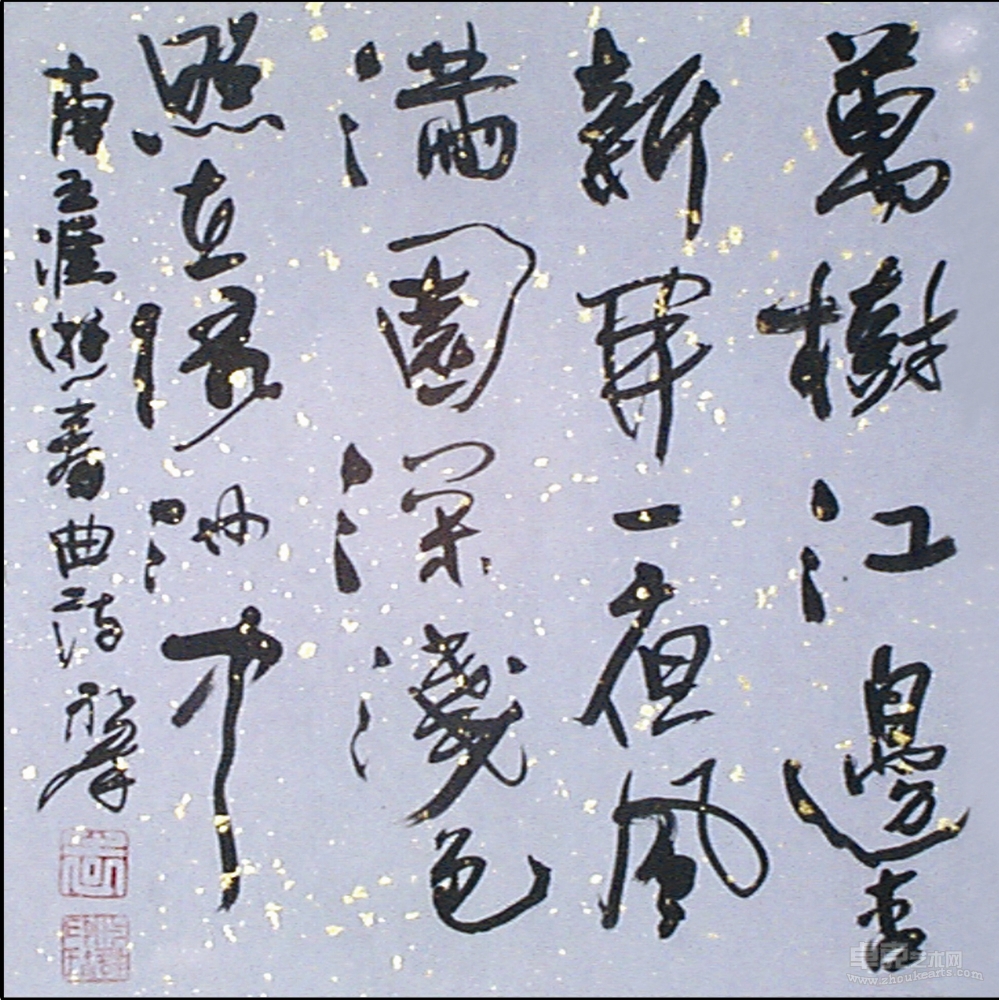 萬樹江邊杏
新開一夜風
滿園深淺色
照在綠波中
唐王涯游春曲
卓克艺术网
www.zhoukearts.com